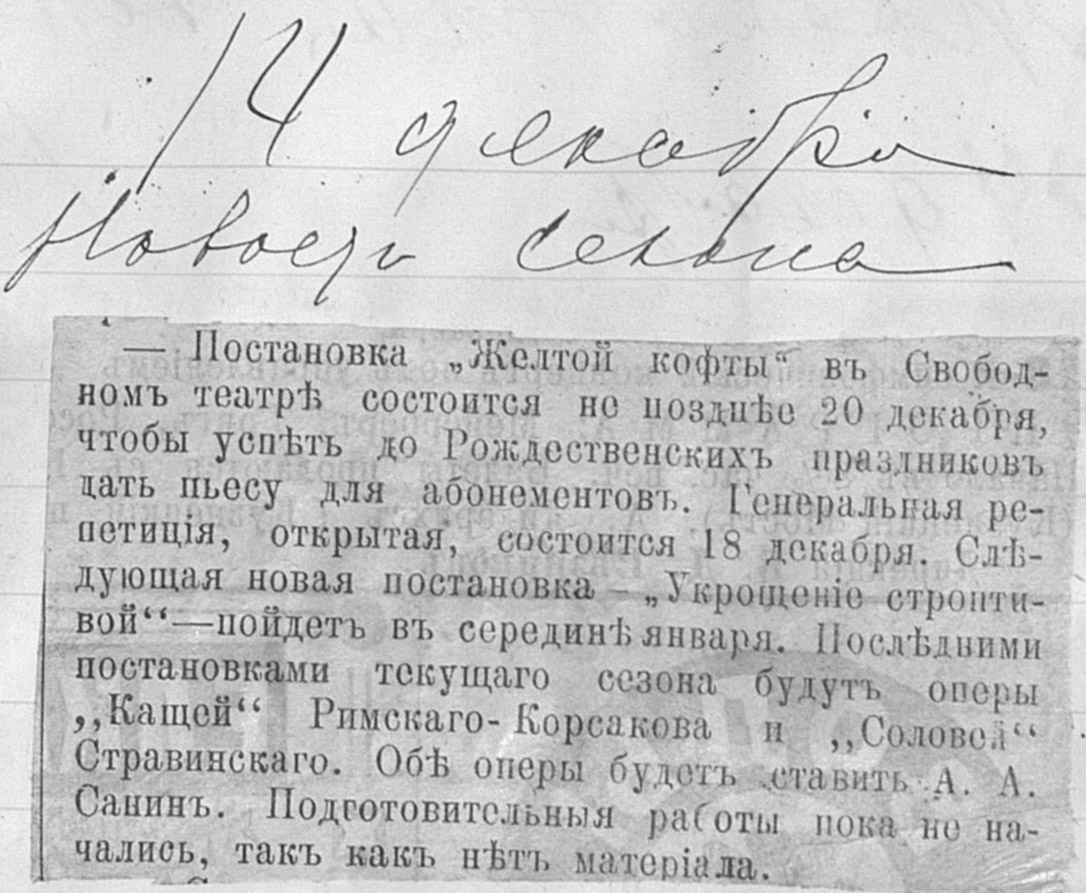 14 декабря
Новости сезона
— Постановка „Желтой кофты“ въ Свобод-
номъ театрѣ состоится не позднѣе 20 декабря,
чтобы успѣть до Рождественскихъ праздниковъ
дать пьесу для абонементовъ. Генеральная ре-
петиція, открытая, состоится 18 декабря. Слѣ-
дующая новая постановка — „Укрощеніе стропти-
вой“—пойдетъ въ серединѣ января. Послѣдними
постановками текущаго сезона будутъ оперы
,,Кащей“ Римскаго-Корсакова и ,,Соловей“
Стравинскаго. Обѣ оперы будетъ ставить А. А.
Санинъ. Подготовительныя работы пока не на-
чались, такъ какъ нѣтъ матеріала.